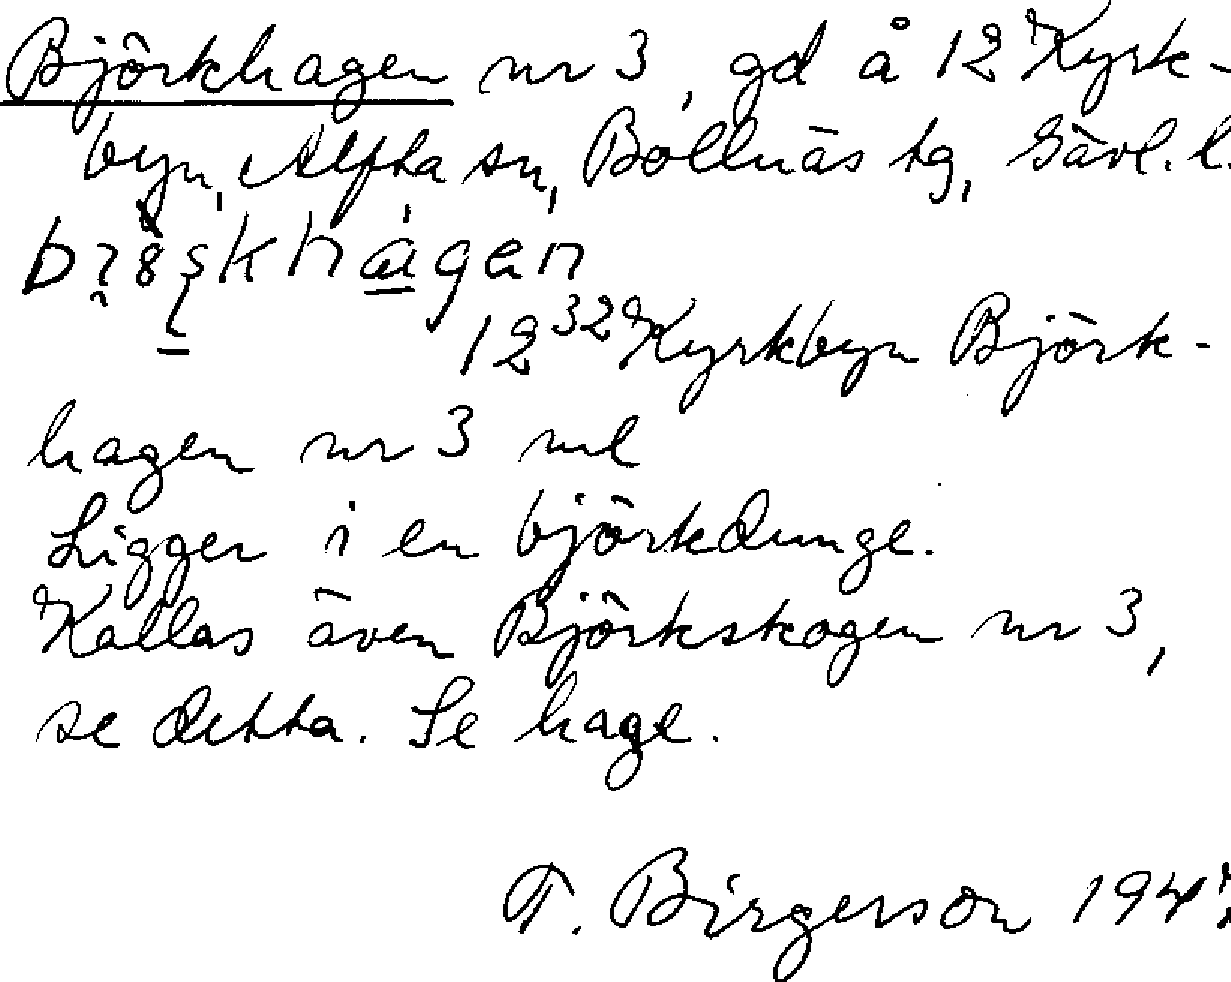 Björkhagen nr 3, gd å 12 Kyrk-
byn, Alfta sn, Bollnäs tg, Gävl. l.
12³² Kyrkbyn Björk-
hagen nr 3 ml
Ligger i en björkdunge.
Kallas även Björkskogen nr 3,
se detta. Se hage.
T. Birgerson